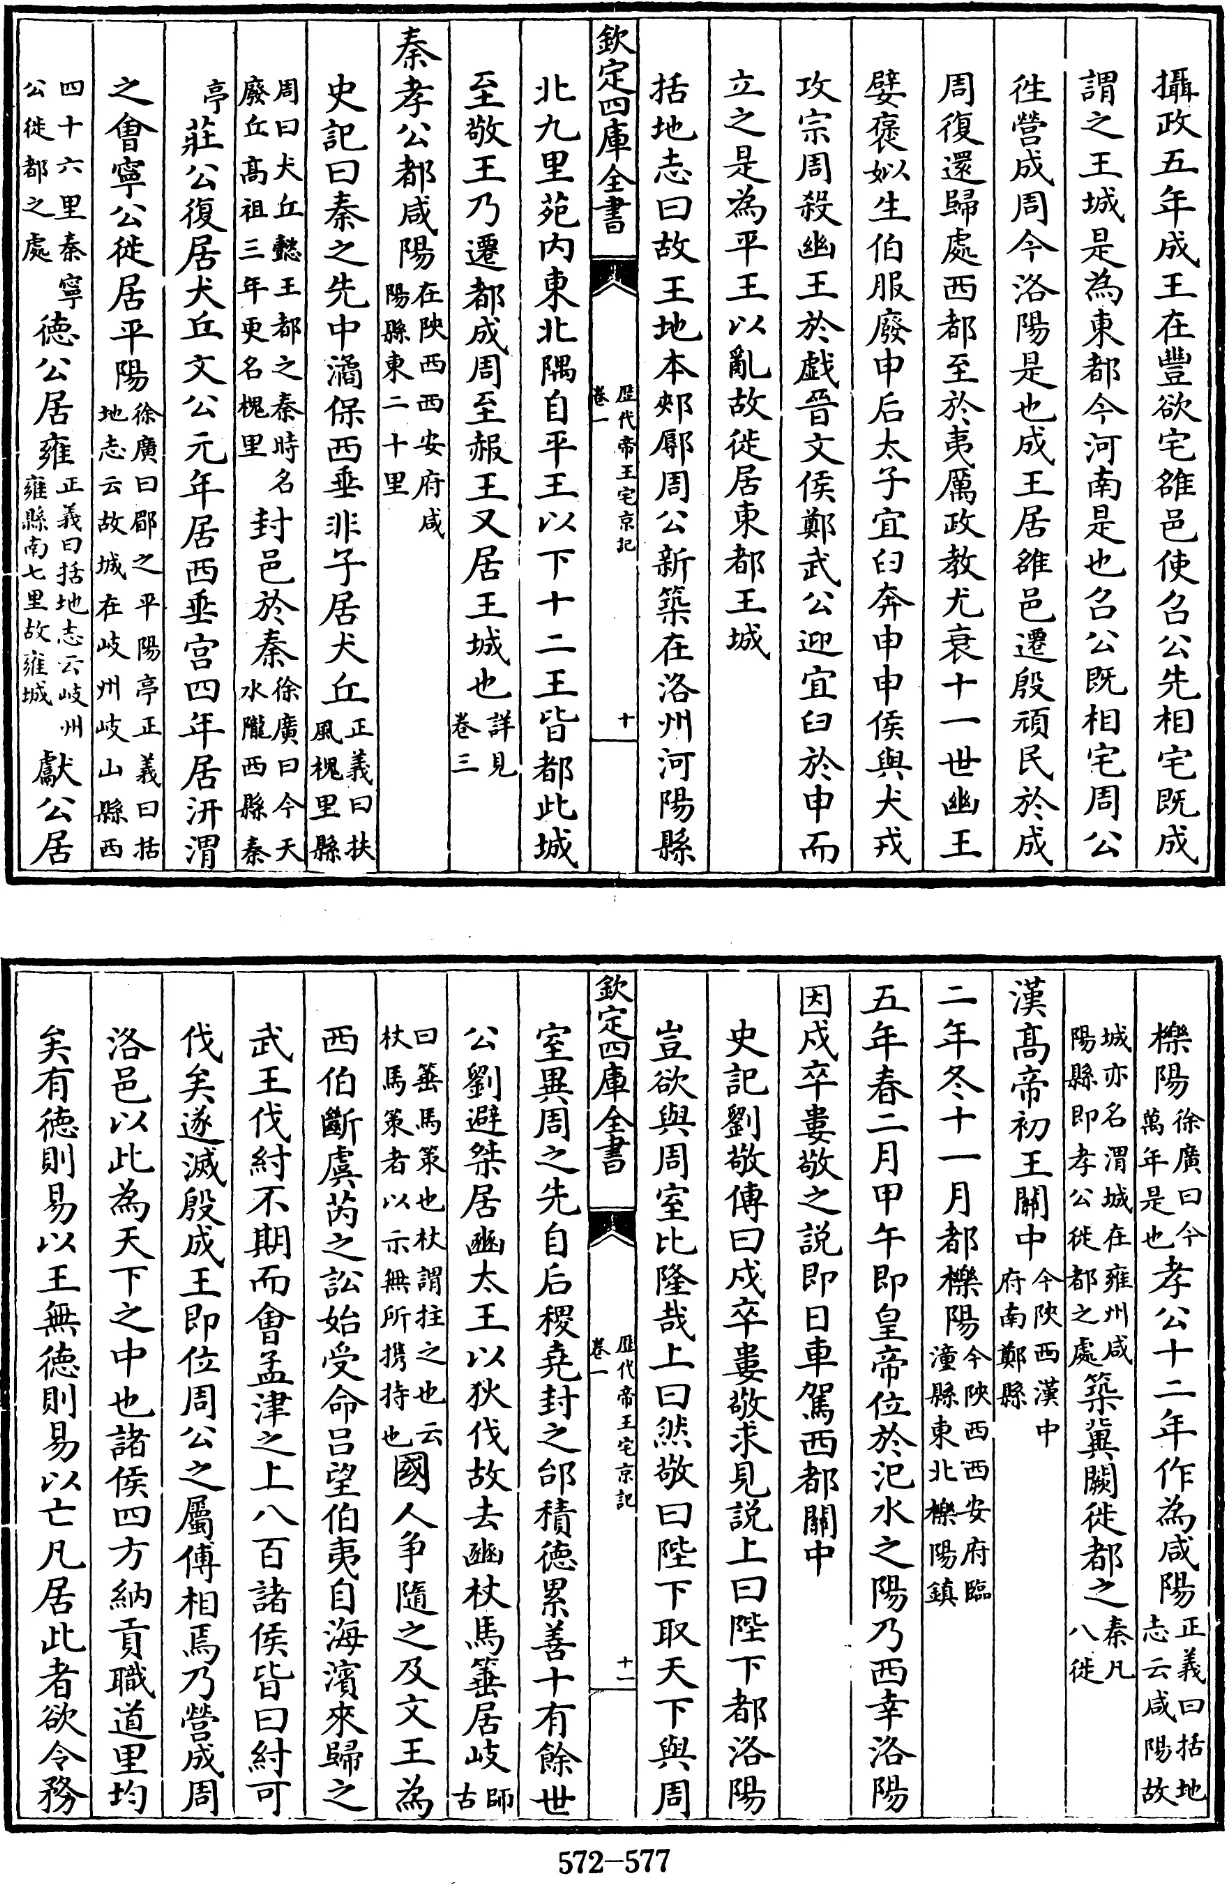 攝政五年成王在豐欲宅雒邑使召公先相宅既成
謂之王城是為東都今河南是也召公既相宅周公
徃營成周今洛陽是也成王居雒邑遷殷頑民於成
周復還歸處西都至於夷厲政教尤衰十一世幽王
嬖褒姒生伯服廢申后太子宜臼奔申申侯與犬戎
攻宗周殺幽王於戲晉文侯鄭武公迎宜臼於申而
立之是為平王以亂故徙居東都王城
括地志曰故王地本郟鄏周公新築在洛州河陽縣
欽定四庫全書
歴代帝王宅京記
卷一
十
北九里苑内東北隅自平王以下十二王皆都此城
至敬王乃遷都成周至赧王又居王城也詳見卷三
秦孝公都咸陽在陜西西安府咸陽縣東二十里
史記曰秦之先中潏保西垂非子居犬丘正義曰扶風槐里縣
周曰犬丘懿王都之秦時名廢丘高祖三年更名槐里封邑於秦徐廣曰今天水隴西縣秦
亭莊公復居犬丘文公元年居西垂宫四年居汧渭
之會寧公徙居平陽徐廣曰郿之平陽亭正義曰括地志云故城在岐州岐山縣西
四十六里秦寧公徙都之處德公居雍正義曰括地志云岐州雍縣南七里故雍城獻公居
櫟陽徐廣曰今萬年是也孝公十二年作為咸陽正義曰括地志云咸陽故
城亦名渭城在雍州咸陽縣即孝公徙都之處築冀闕徙都之秦凡八徙
漢高帝初王關中今陜西漢中府南鄭縣
二年冬十一月都櫟陽今陜西西安府臨潼縣東北櫟陽鎮
五年春二月甲午即皇帝位於汜水之陽乃西幸洛陽
因戍卒婁敬之説即日車駕西都關中
史記劉敬傳曰戍卒婁敬求見説上曰陛下都洛陽
豈欲與周室比隆哉上曰然敬曰陛下取天下與周
欽定四庫全書
歴代帝王宅京記
卷一
十一
室異周之先自后稷堯封之邰積德累善十有餘世
公劉避桀居豳太王以狄伐故去豳杖馬箠居岐師古
曰箠馬策也杖謂拄之也云杖馬策者以示無所攜持也國人争隨之及文王為
西伯斷虞芮之訟始受命吕望伯夷自海濱來歸之
武王伐紂不期而會孟津之上八百諸侯皆曰紂可
伐矣遂滅殷成王即位周公之屬傅相焉乃營成周
洛邑以此為天下之中也諸侯四方納貢職道里均
矣有德則易以王無德則易以亡凡居此者欲令務
572-577